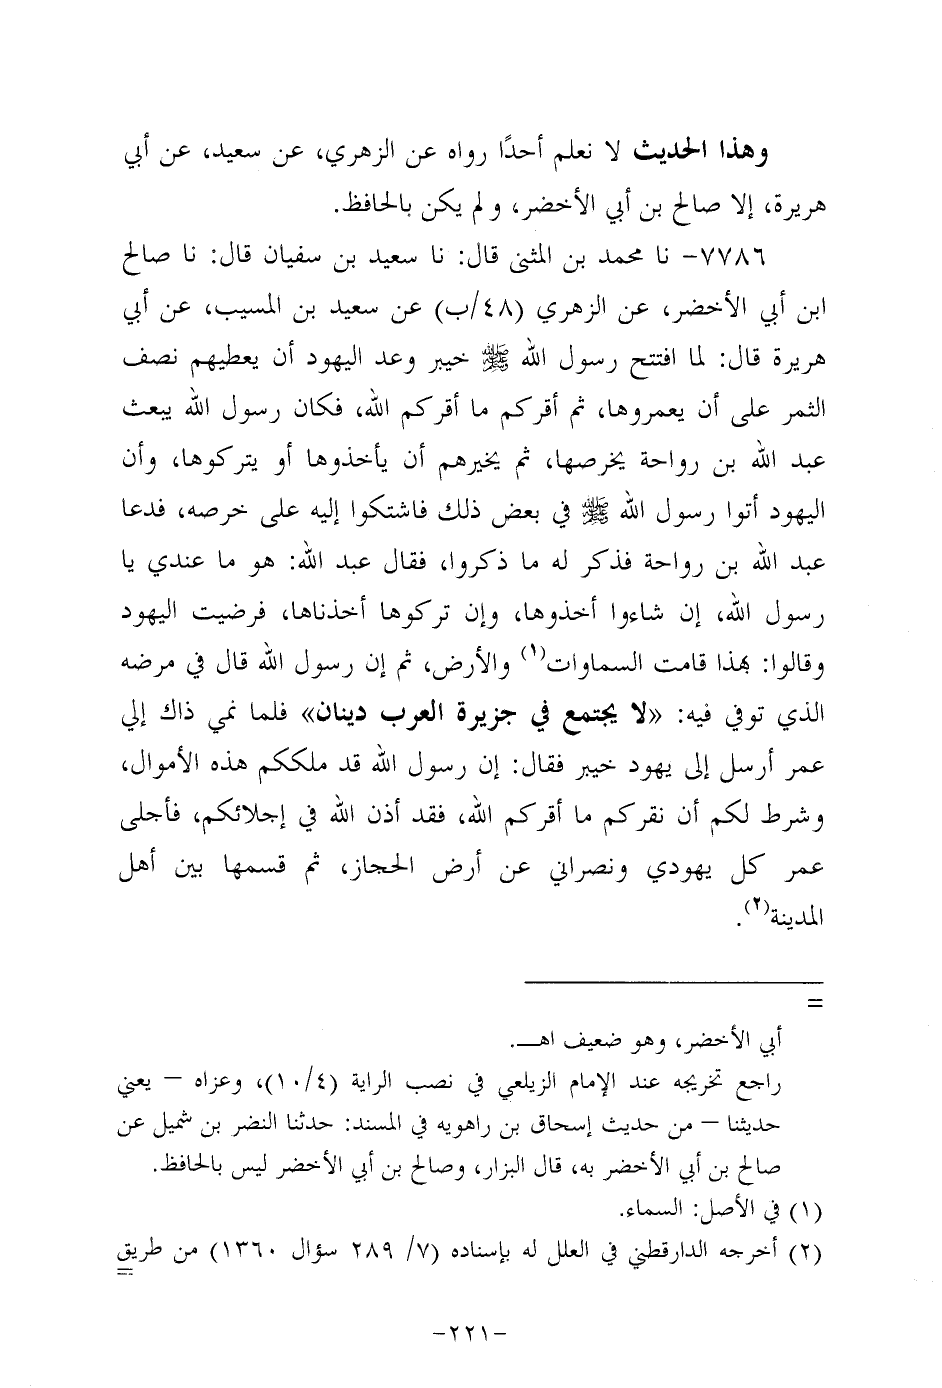 وهذا الحديث لا نعلم أحدًا رواه عن الزهري، عن سعيد، عن أبي
هريرة، إلا صالح بن أبي الأخضر، و لم يكن بالحافظ.
٧٧٨٦- نا محمد بن المثنى قال: نا سعيد بن سفيان قال: نا صالح
ابن أبي الأخضر، عن الزهري (٤٨/ب) عن سعيد بن المسيب، عن أبي
هريرة قال: لما افتتح رسول الله ﷺ خيبر وعد اليهود أن يعطيهم نصف
الثمر على أن يعمروها، ثم أقركم ما أقركم الله، فكان رسول الله يبعث
عبد الله بن رواحة يخرصها، ثم يخيرهم أن يأخذوها أو يتركوها، وأن
اليهود أتوا رسول الله ﷺ في بعض ذلك فاشتكوا إليه على خرصه، فدعا
عبد الله بن رواحة فذكر له ما ذكروا، فقال عبد الله: هو ما عندي يا
رسول الله، إن شاءوا أخذوها، وإن تركوها أخذناها، فرضيت اليهود
وقالوا: بهذا قامت السماوات(١) والأرض، ثم إن رسول الله قال في مرضه
الذي توفي فيه: «لا يجتمع في جزيرة العرب دينان» فلما نمي ذاك إلي
عمر أرسل إلى يهود خيبر فقال: إن رسول الله قد ملككم هذه الأموال،
وشرط لكم أن نقركم ما أقركم الله، فقد أذن الله في إجلائكم، فأجلى
عمر كل يهودي ونصراني عن أرض الحجاز، ثم قسمها بين أهل
المدينة(٢).
=
أبي الأخضر، وهو ضعيف اهـ.
راجع تخريجه عند الإمام الزيلعي في نصب الراية (١٠/٤)، وعزاه – يعني
حديثنا – من حديث إسحاق بن راهويه في المسند: حدثنا النضر بن شميل عن
صالح بن أبي الأخضر به، قال البزار، وصالح بن أبي الأخضر ليس بالحافظ.
(١) في الأصل: السماء.
(٢) أخرجه الدارقطني في العلل له بإسناده (٧/ ٢٨٩ سؤال ١٣٦٠) من طريق
=
-٢٢١-